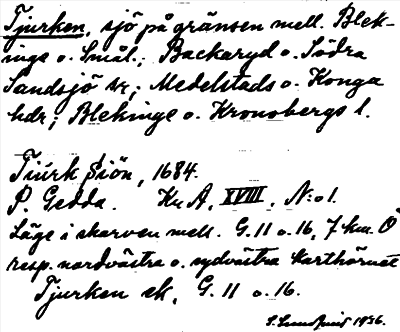 Tjurken, sjö på gränsen mell. Blek-
inge o. Smål.; Backaryd o. Södra
Sandsjö snr; Medelstads o. Konga
hdr; Blekinge o. Kronobergs l.
Tiurk siön, 1684.
P. Gedda. Kr A, XVIII, N:o 1.
Läge i skarven mell. G. 11 o. 16, 7 km. Ö
resp. nordvästra o. sydvästra karthörnet
Tjurken ek, G. 11 o. 16.
1936.